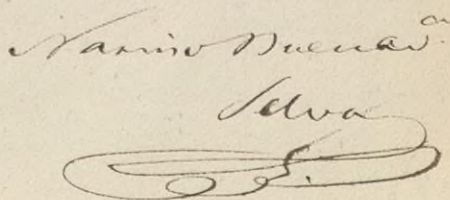 Narciso Buenav.a
Selva